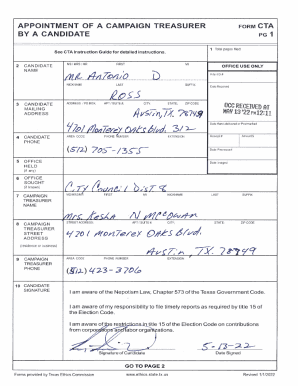 APPOINTMENT OF A CAMPAIGN TREASURER
BY A CANDIDATE
FORM CTA
PG 1
See CTA Instruction Guide for detailed instructions.
1 Total pages filed:
2 CANDIDATE NAME
MS / MRS / MR FIRST MI
Mr Antonio D
NICKNAME LAST SUFFIX
Ross
OFFICE USE ONLY
3 CANDIDATE MAILING ADDRESS
ADDRESS / PO BOX; APT / SUITE #; CITY; STATE; ZIP CODE
Austin, TX 78749
4701 Monterey Oaks Blvd. 312
OCC RECEIVED AT
MAY 13 '22 PM12:11
4 CANDIDATE PHONE
AREA CODE PHONE NUMBER EXTENSION
(512) 705-1355
5 OFFICE HELD
(if any)
6 OFFICE SOUGHT
(if known)
City Council Dist 8
7 CAMPAIGN TREASURER NAME
MS/MRS/MR FIRST MI NICKNAME LAST SUFFIX
Mrs. Kesha N McCowan
8 CAMPAIGN TREASURER STREET ADDRESS
(residence or business)
STREET ADDRESS; APT / SUITE #; CITY; STATE; ZIP CODE
4701 Monterey Oaks Blvd.
Austin, TX. 78749
9 CAMPAIGN TREASURER PHONE
AREA CODE PHONE NUMBER EXTENSION
(512) 423-3706
10 CANDIDATE SIGNATURE
I am aware of the Nepotism Law, Chapter 573 of the Texas Government Code.
I am aware of my responsibility to file timely reports as required by title 15 of
the Election Code.
I am aware of the restrictions in title 15 of the Election Code on contributions
from corporations and labor organizations.
5-13-22
Signature of Candidate Date Signed
GO TO PAGE 2
Forms provided by Texas Ethics Commission www.ethics.state.tx.us Revised 1/1/2022